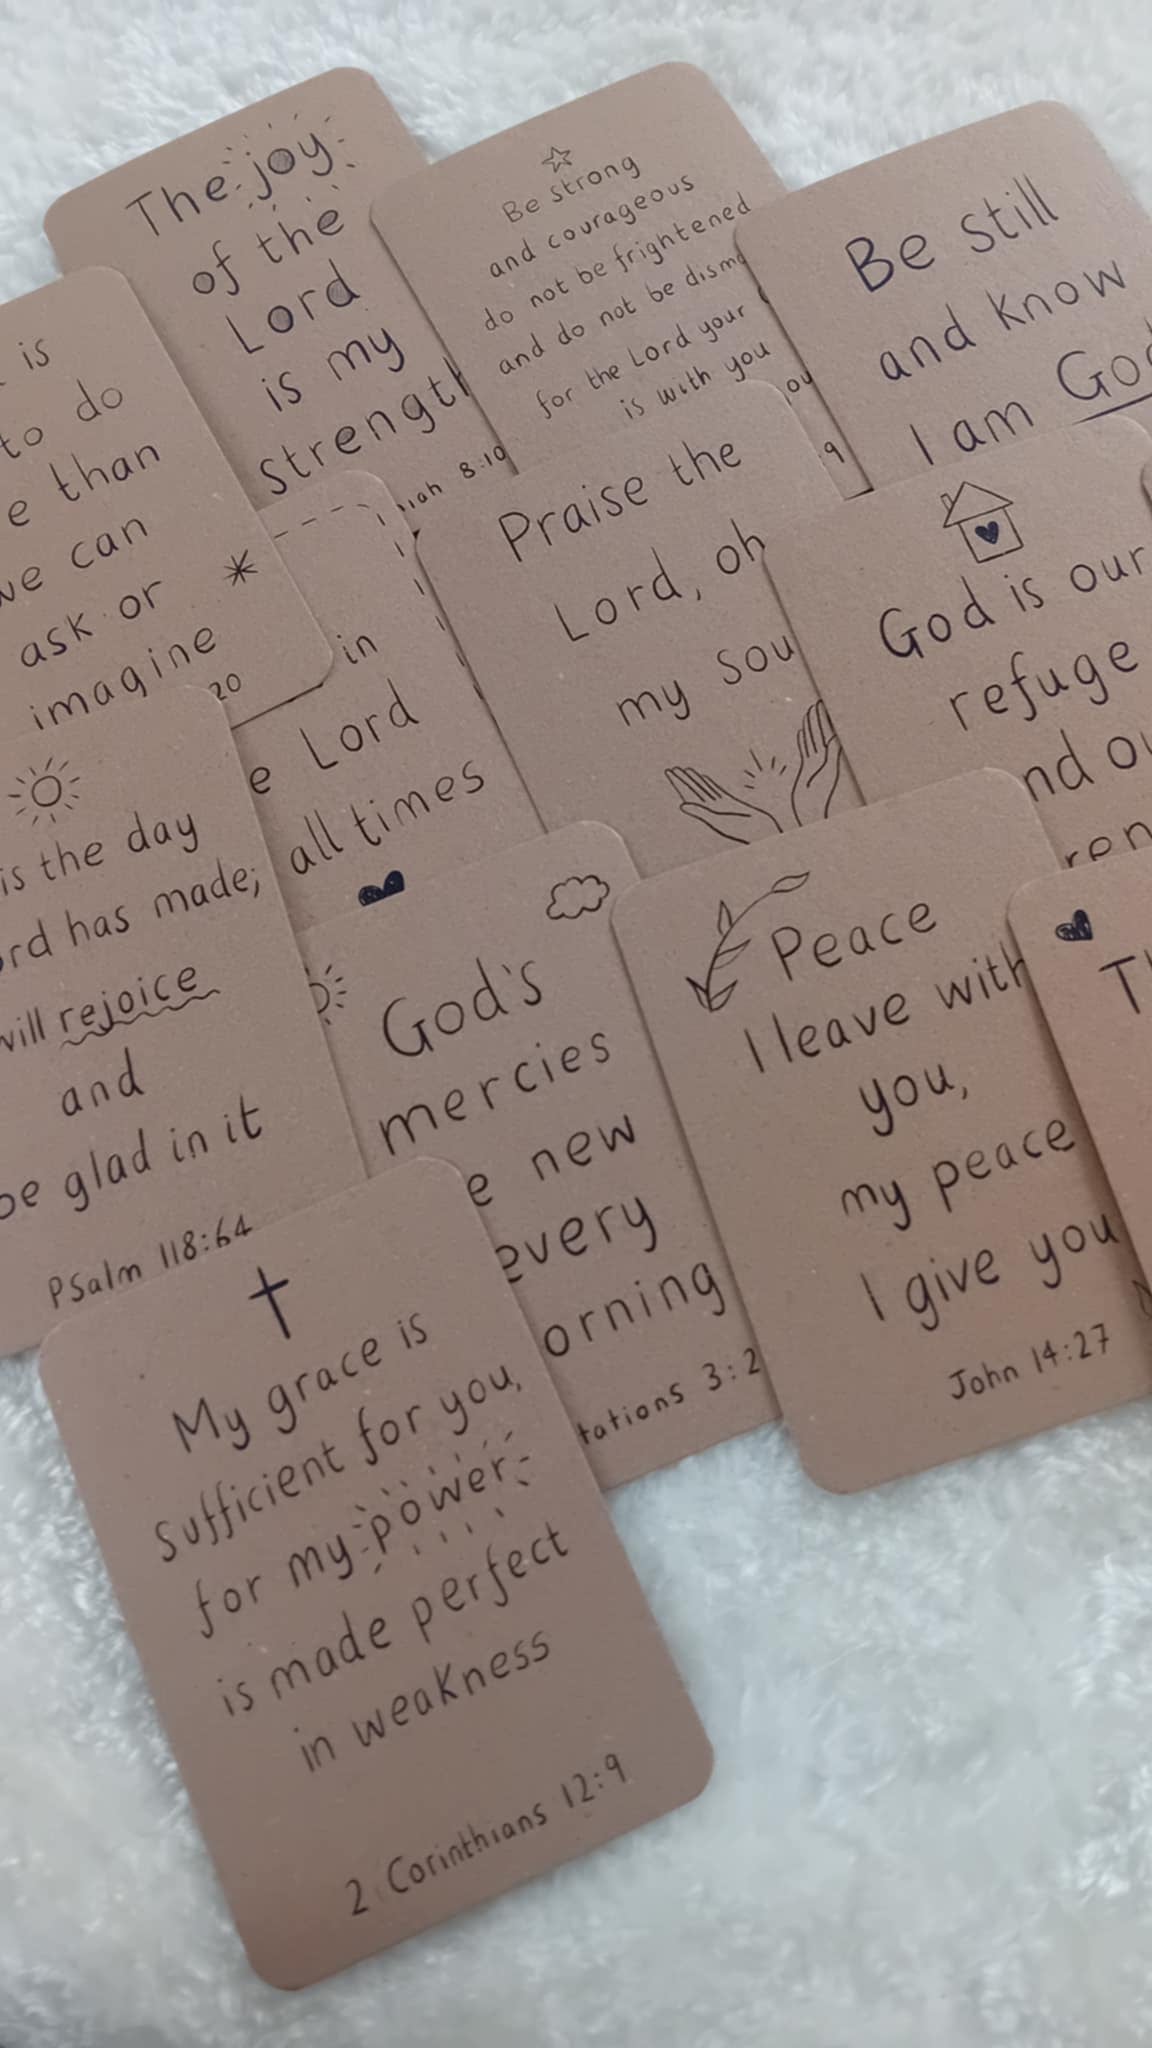 The joy
of the
Lord
is my
strength
8:10
Be strong
and courageous
do not be frightened
and do not be
for the Lord your
is with you
Be still
and know
I am God
is
to do
than
can
ask or
imagine
20
in
Lord
all times
Praise the
Lord, oh
my
God is our
refuge
is the day
has made;
will rejoice
and
be glad in it
Psalm 118:64
God's
mercies
new
every
3:2
Peace
I leave with
you,
my peace
I give you
John 14:27
My grace is
sufficient for you,
for my power
is made perfect
in weakness
2 Corinthians 12:9